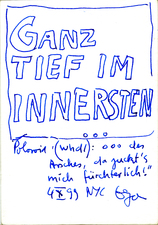 GANZ
TIEF IM
INNERSTEN
ooo
Polaroid (Whdl): ooo des
Arsches, da zuckt's
mich fürchterlich!"
4 X 99 NYC